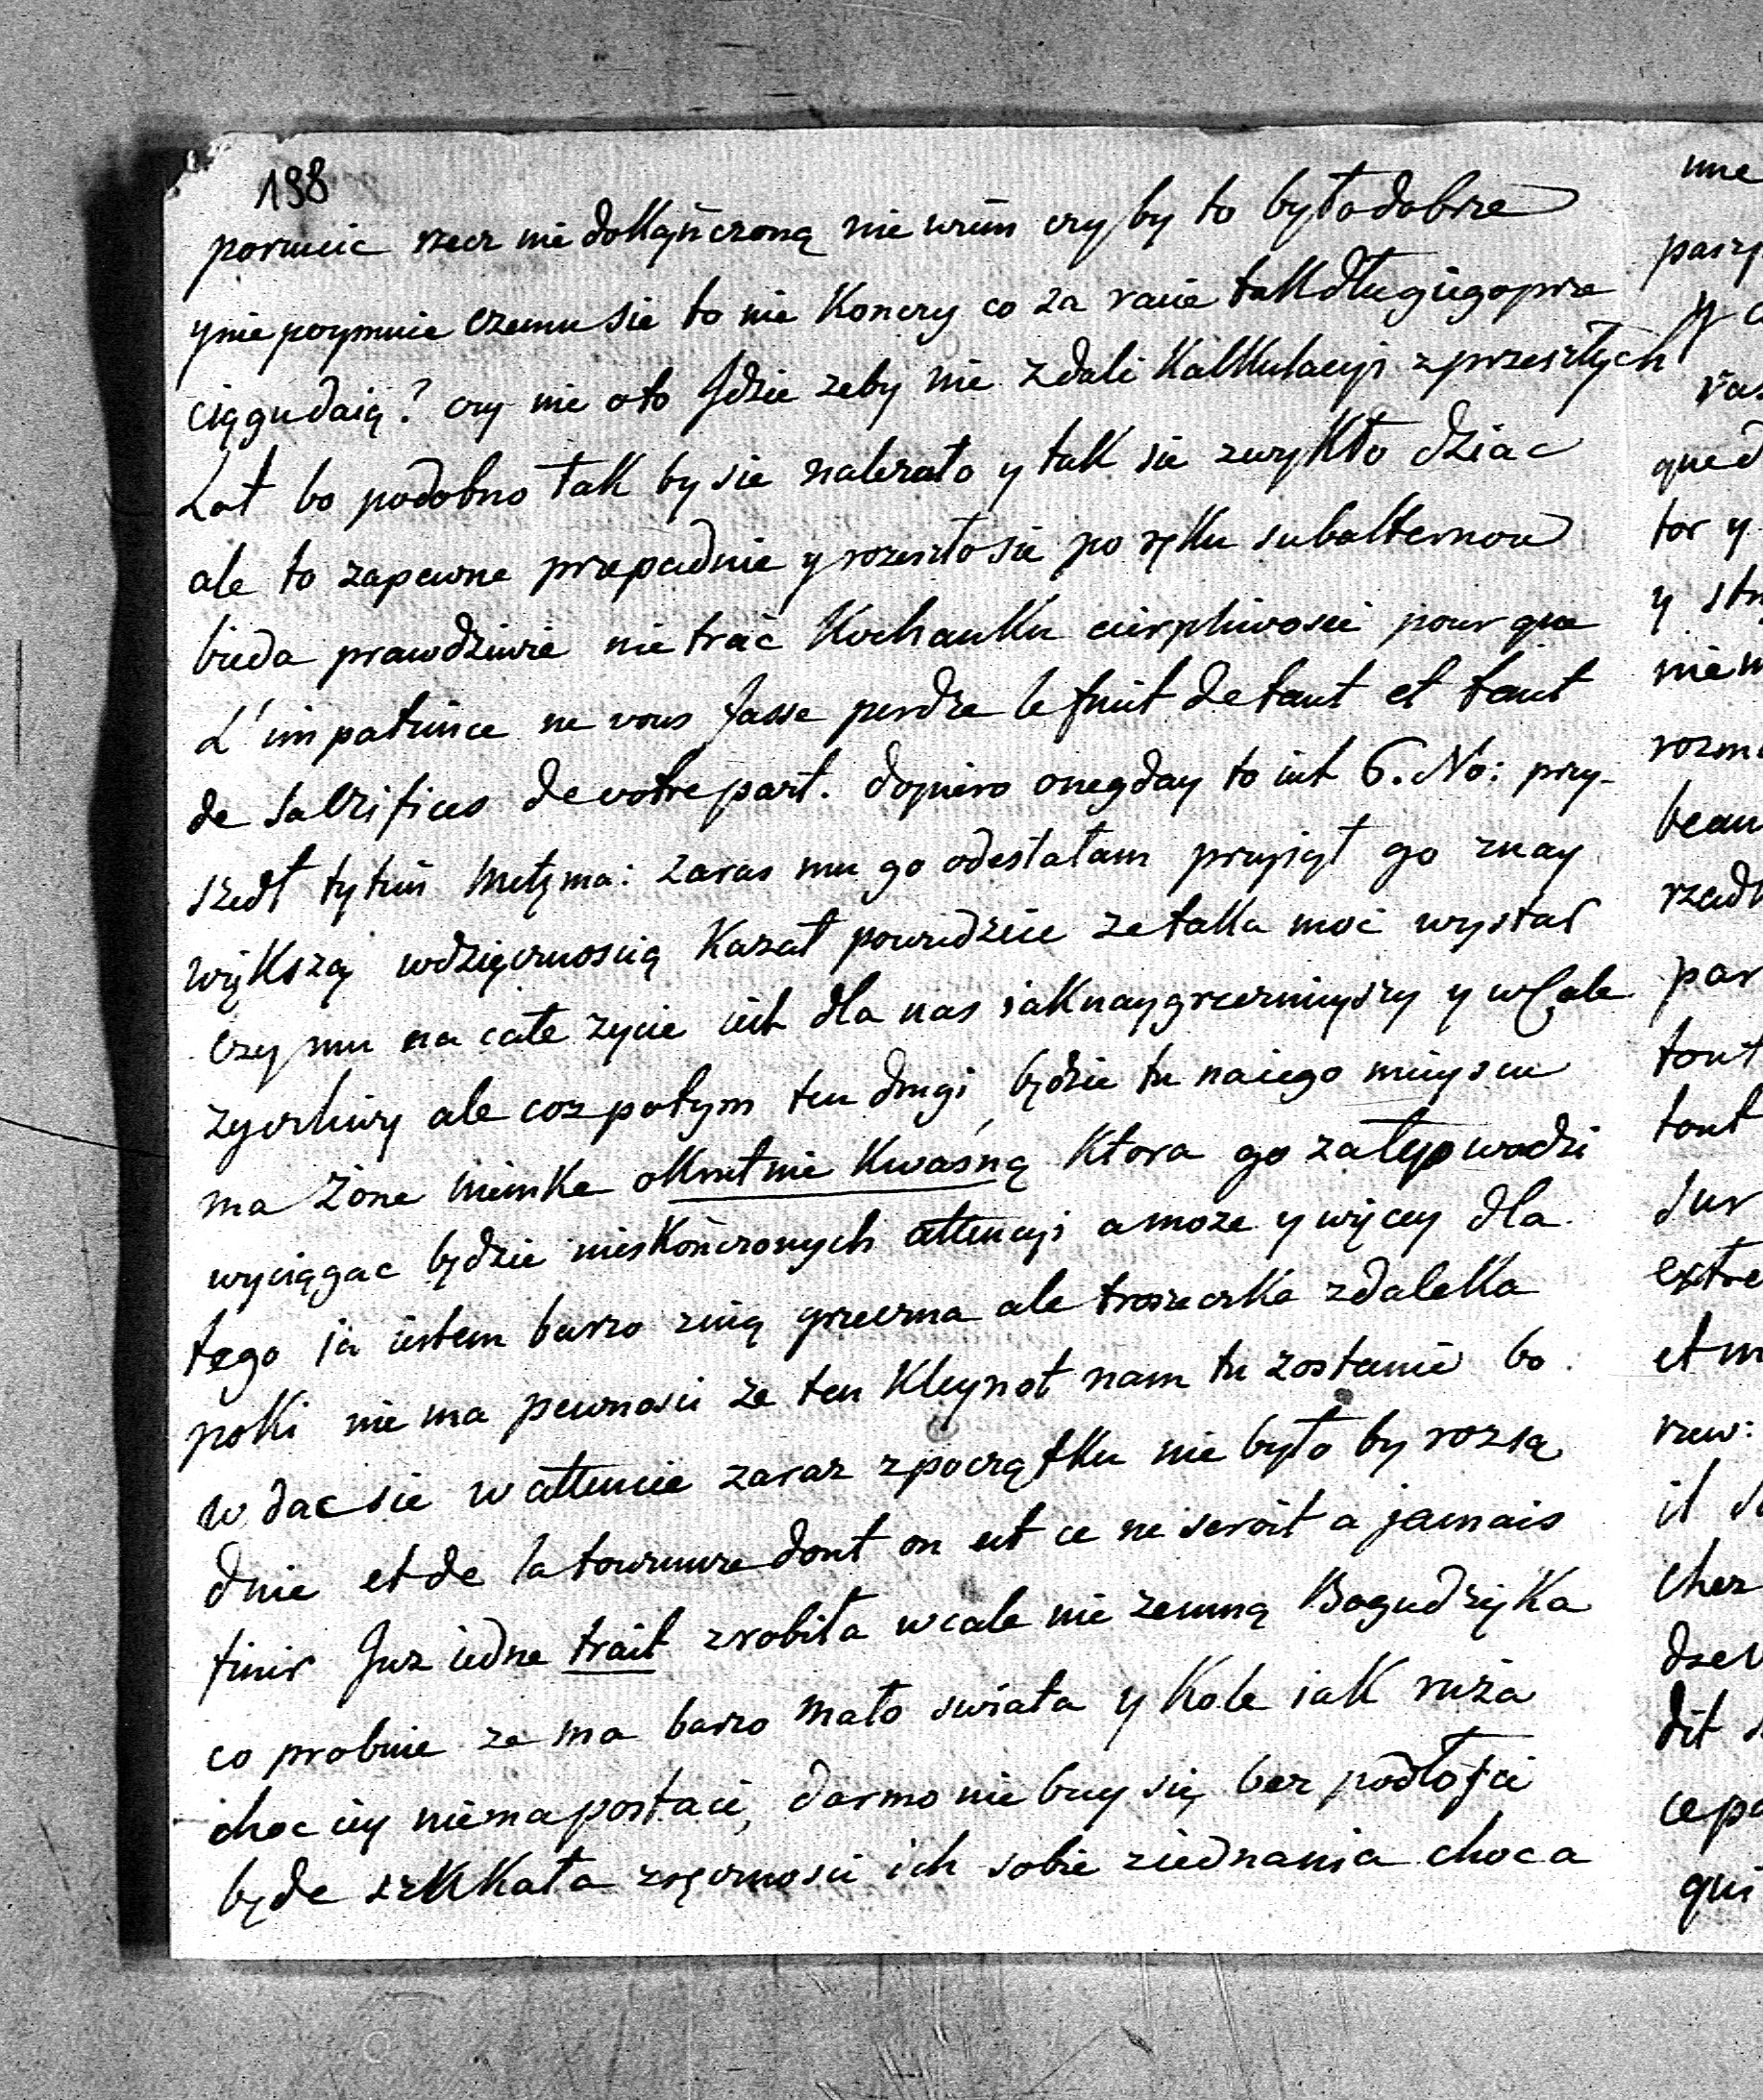 198
porzucic rzecz nie dokąńczoną nie wiem czy by to było dobrze
y nie poymuie czemu sie to nie konczy co za racie tak długiego prze
ciągu daią? czy nie oto Jdzie zeby nie zdali kalkulacyi z przeszłych
Lat bo podobno tak by sie nalezało y tak sie zwykło dziac
ale to zapewne przepadnie y rozeszło sie po ręku subalternow
bieda prawdziwie nie trać Kochanku cierpliwosci pour que
L'impatience ne vous fasse perdre le fruit de tant et tant
de sacrifices de votre part. dopiero onegday to iest 6. No: przy-
szedł tytuń Metzma: zaras mu go odesłałam przyjął go z nay
większą wdzięcznoscią Kazał powiedziec ze taka moc wystar
czy mu na całe zycie iest dla nas iak naygrzecznieyszy y wcale
zyczliwy ale coz potym ten drugi będzie tu na iego mieyscu
ma żone niemke okrutnie kwaśną ktora go za łep wodzi
wyciągac będzie nieskończonych attencyi a moze y więcey dla
tego ja iestem barzo znią grzeczna ale troszeczke zdaleka
poki nie ma pewnosci ze ten kleynot nam tu zostanie bo
w dac sie w attencie zaraz z początku nie było by rozsą
dnie et de la tournure dont on est ce ne seroit a jamais
finir Juz iedne trait zrobiła wcale nie zemną Bogu dzięka
co probuie ze ma barzo mało swiata y kole iak ruża
choc iey niema postaci, darmo nie buy się bez podłości
będe szukała zręcznosci ich sobie ziednania choc a
une
pasz
y
ras
que d
tor y
y str
nie w
rozm
beau
rzad
par
tout
tout
sur
extre
et m
rzew:
il
chez
dit
ce pa
qui